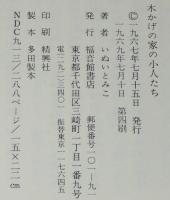 木かげの家の小人たち
©一九六七年七月十五日 発行
一九六九年七月十日 第四刷
著者 いぬいとみこ
発行 福音館書店 郵便番号一〇一-九一
東京都千代田区三崎町一丁目一番九号
電二九二-三四〇一 振替東京一一七六四五
印刷 精興社
製本 多田製本
NDC九一三/二八八ページ/一五×二二cm